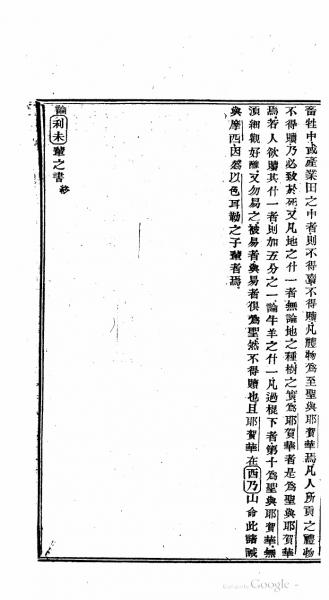 畜牲中或產業田之中者則不得賣不得贖凡禮物為至聖與耶賀華焉凡人所貢之禮物
不得贖乃必致於死又凡地之什一者無論地之種樹之實為耶賀華者是為聖與耶賀華
焉若人欲贖其什一者則加五分之一論牛羊之什一凡過棍下者第十為聖與耶賀華無
須細觀好醜又勿易之被易者與易者俱為聖然不得贖也且耶賀華在西乃山命此諸誡
與摩西因為以色耳勒之子輩者焉
論利未輩之書終
Google